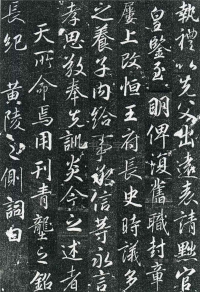 執禮以先父出遠表請黜官
皇鑒至明俾復舊職封章
屢上改恒王府長史時議多
之養子內給事承信等永言
孝思敬奉先訓之述者
天所命焉用刊青壟之銘
長紀黃陵之側詞曰